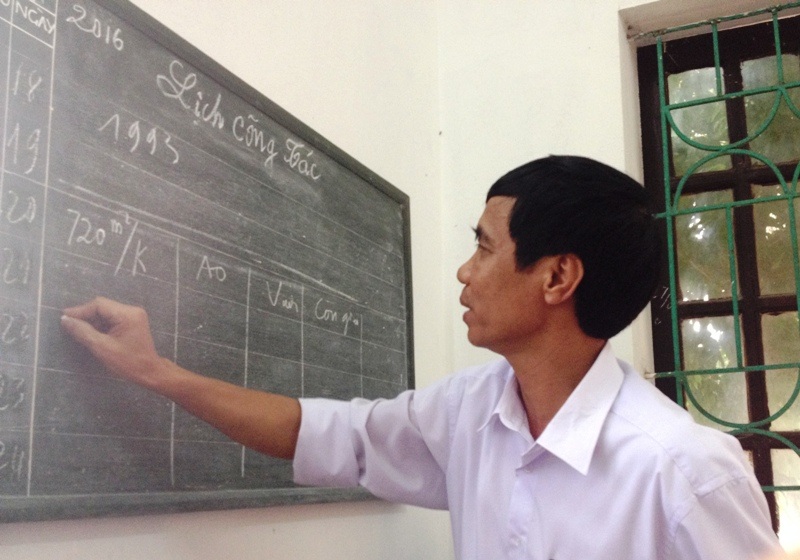 NGAY
2016
Lịch công tác
1993
720 m²/K
AO
Vườn
18
19
20
21
22
23
24